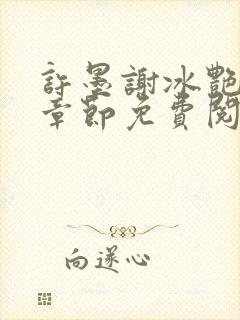 許墨謝冰艷
章節免費閱
向遂心